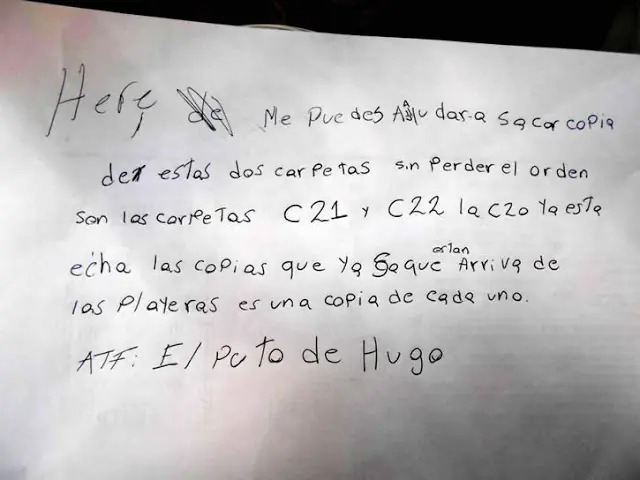 Here, Me Puedes Ayudar a sacar copia
de estas dos carpetas sin perder el orden
son las carpetas C21 y C22 la C20 ya esta
echa las copias que ya saque estan Arriva de
las Playeras es una copia de cada uno.
ATF: El Puto de Hugo